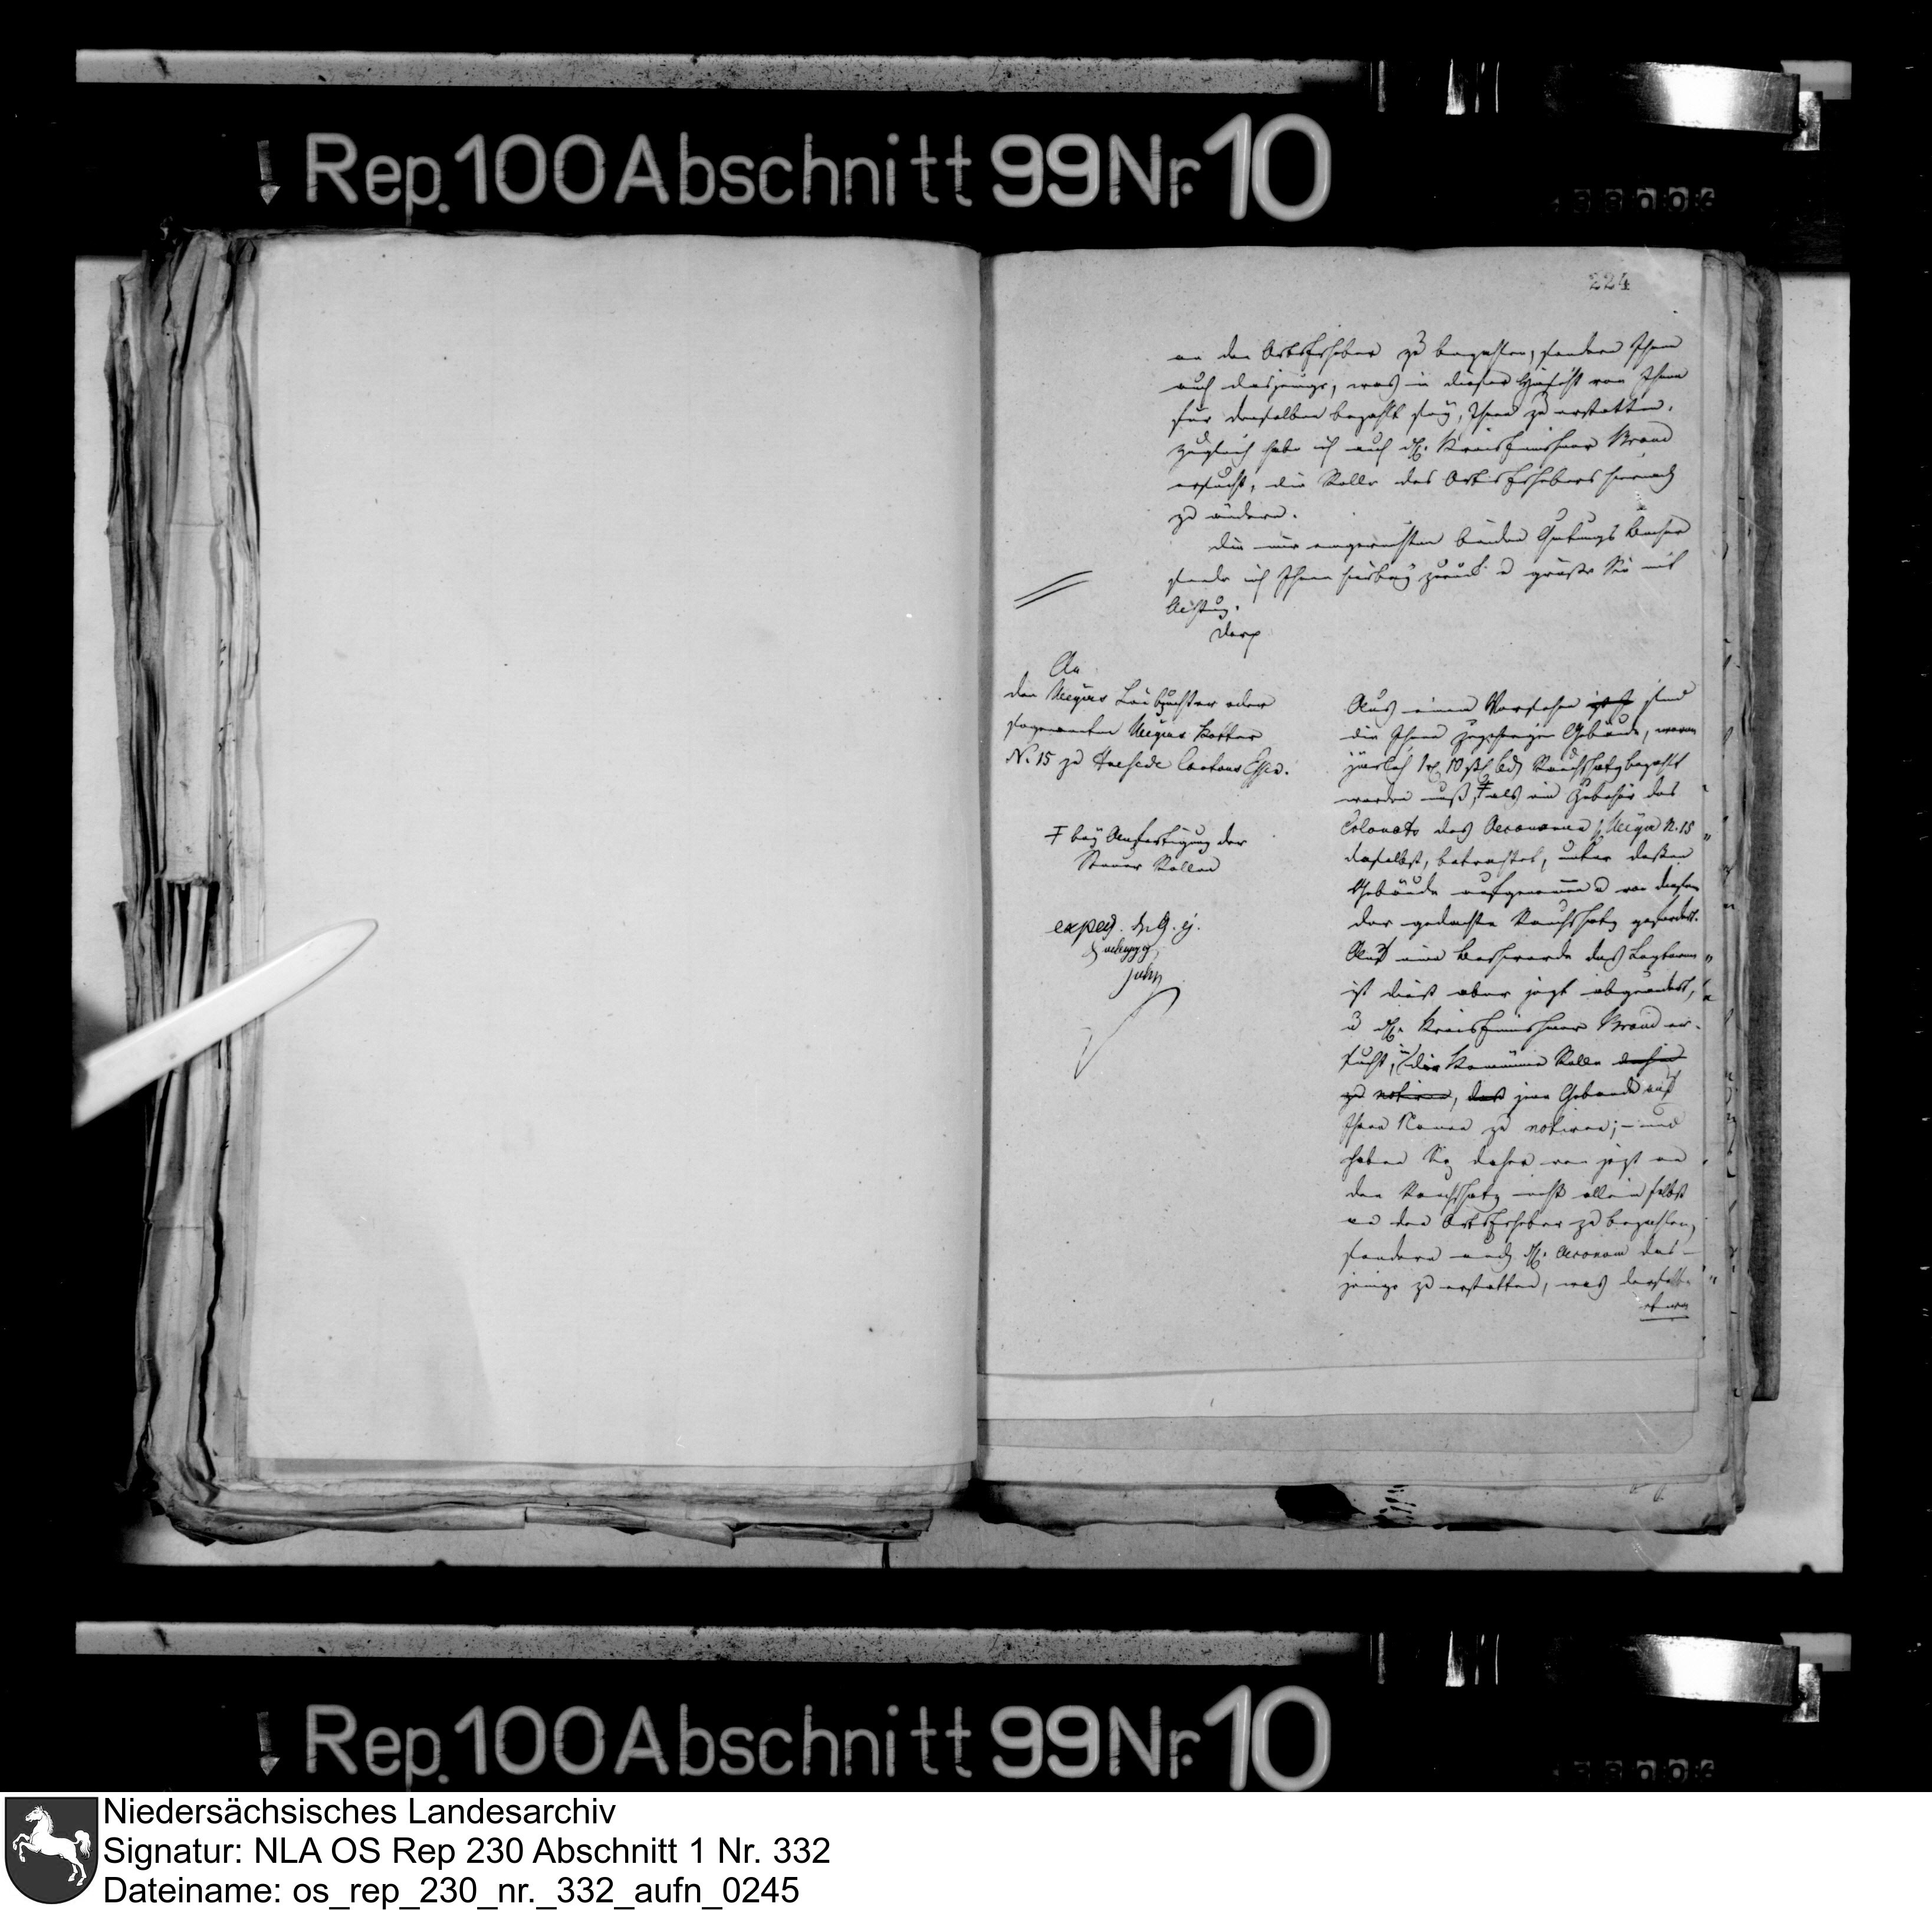 Rep. 100 Abschnitt 99 Nr. 10
224
an den Ortserheber zu bezahlen, sondern Ihnen
auch dasjenige, was in dieser Hinsicht von Ihnen
für denselben bezahlt sey, Ihnen zu erstatten.
Zugleich habe ich auch H. Kreiseinnehmer Brand
ersucht, die Rolle des Ortserhebers hiernach
zu ändern.
Die mir eingereichten beiden Quitungs Bücher
sende ich Ihnen hierbey zurück u grüße Sie mit
Achtung.
An
den Meyers Leibzüchter oder
sogenannten Meyers Kotter
N. 15 zu Cantons Essen.
Ŧ bey Anfertigung der
Steuer Rollen
exped.
Aus einem Versehen sind
die Ihnen zugehörigen Gebäude, wovon
jährlich 1 10 Rauchschatz bezahlt
werden muß, Ŧ als ein Zubehör des
Colonats des Oeconomen Meyer N. 15
daselbst, betrachtet, unter dessen
Gebäude aufgenommen u von diesem
der gedachte Rauchschatz gefordert.
Auf eine Beschwerde des Letztern
ist dieß aber jetzt abgeändert,
u H. Kreiseinnehmer Brand er-
sucht, in der Rolle
zu notiren, daß jene Gebäude auf
Ihren Namen zu notiren; - und
haben Sie daher von jetzt an
den Rauchschatz nicht allein selbst
an den Ortserheber zu bezahlen,
sondern auch H. Oeconom das-
jenige zu erstatten, was derselbe
etwa
Rep. 100 Abschnitt 99 Nr. 10
Niedersächsisches Landesarchiv
Signatur: NLA OS Rep 230 Abschnitt 1 Nr. 332
Dateiname: os_rep_230_nr._332_aufn_0245